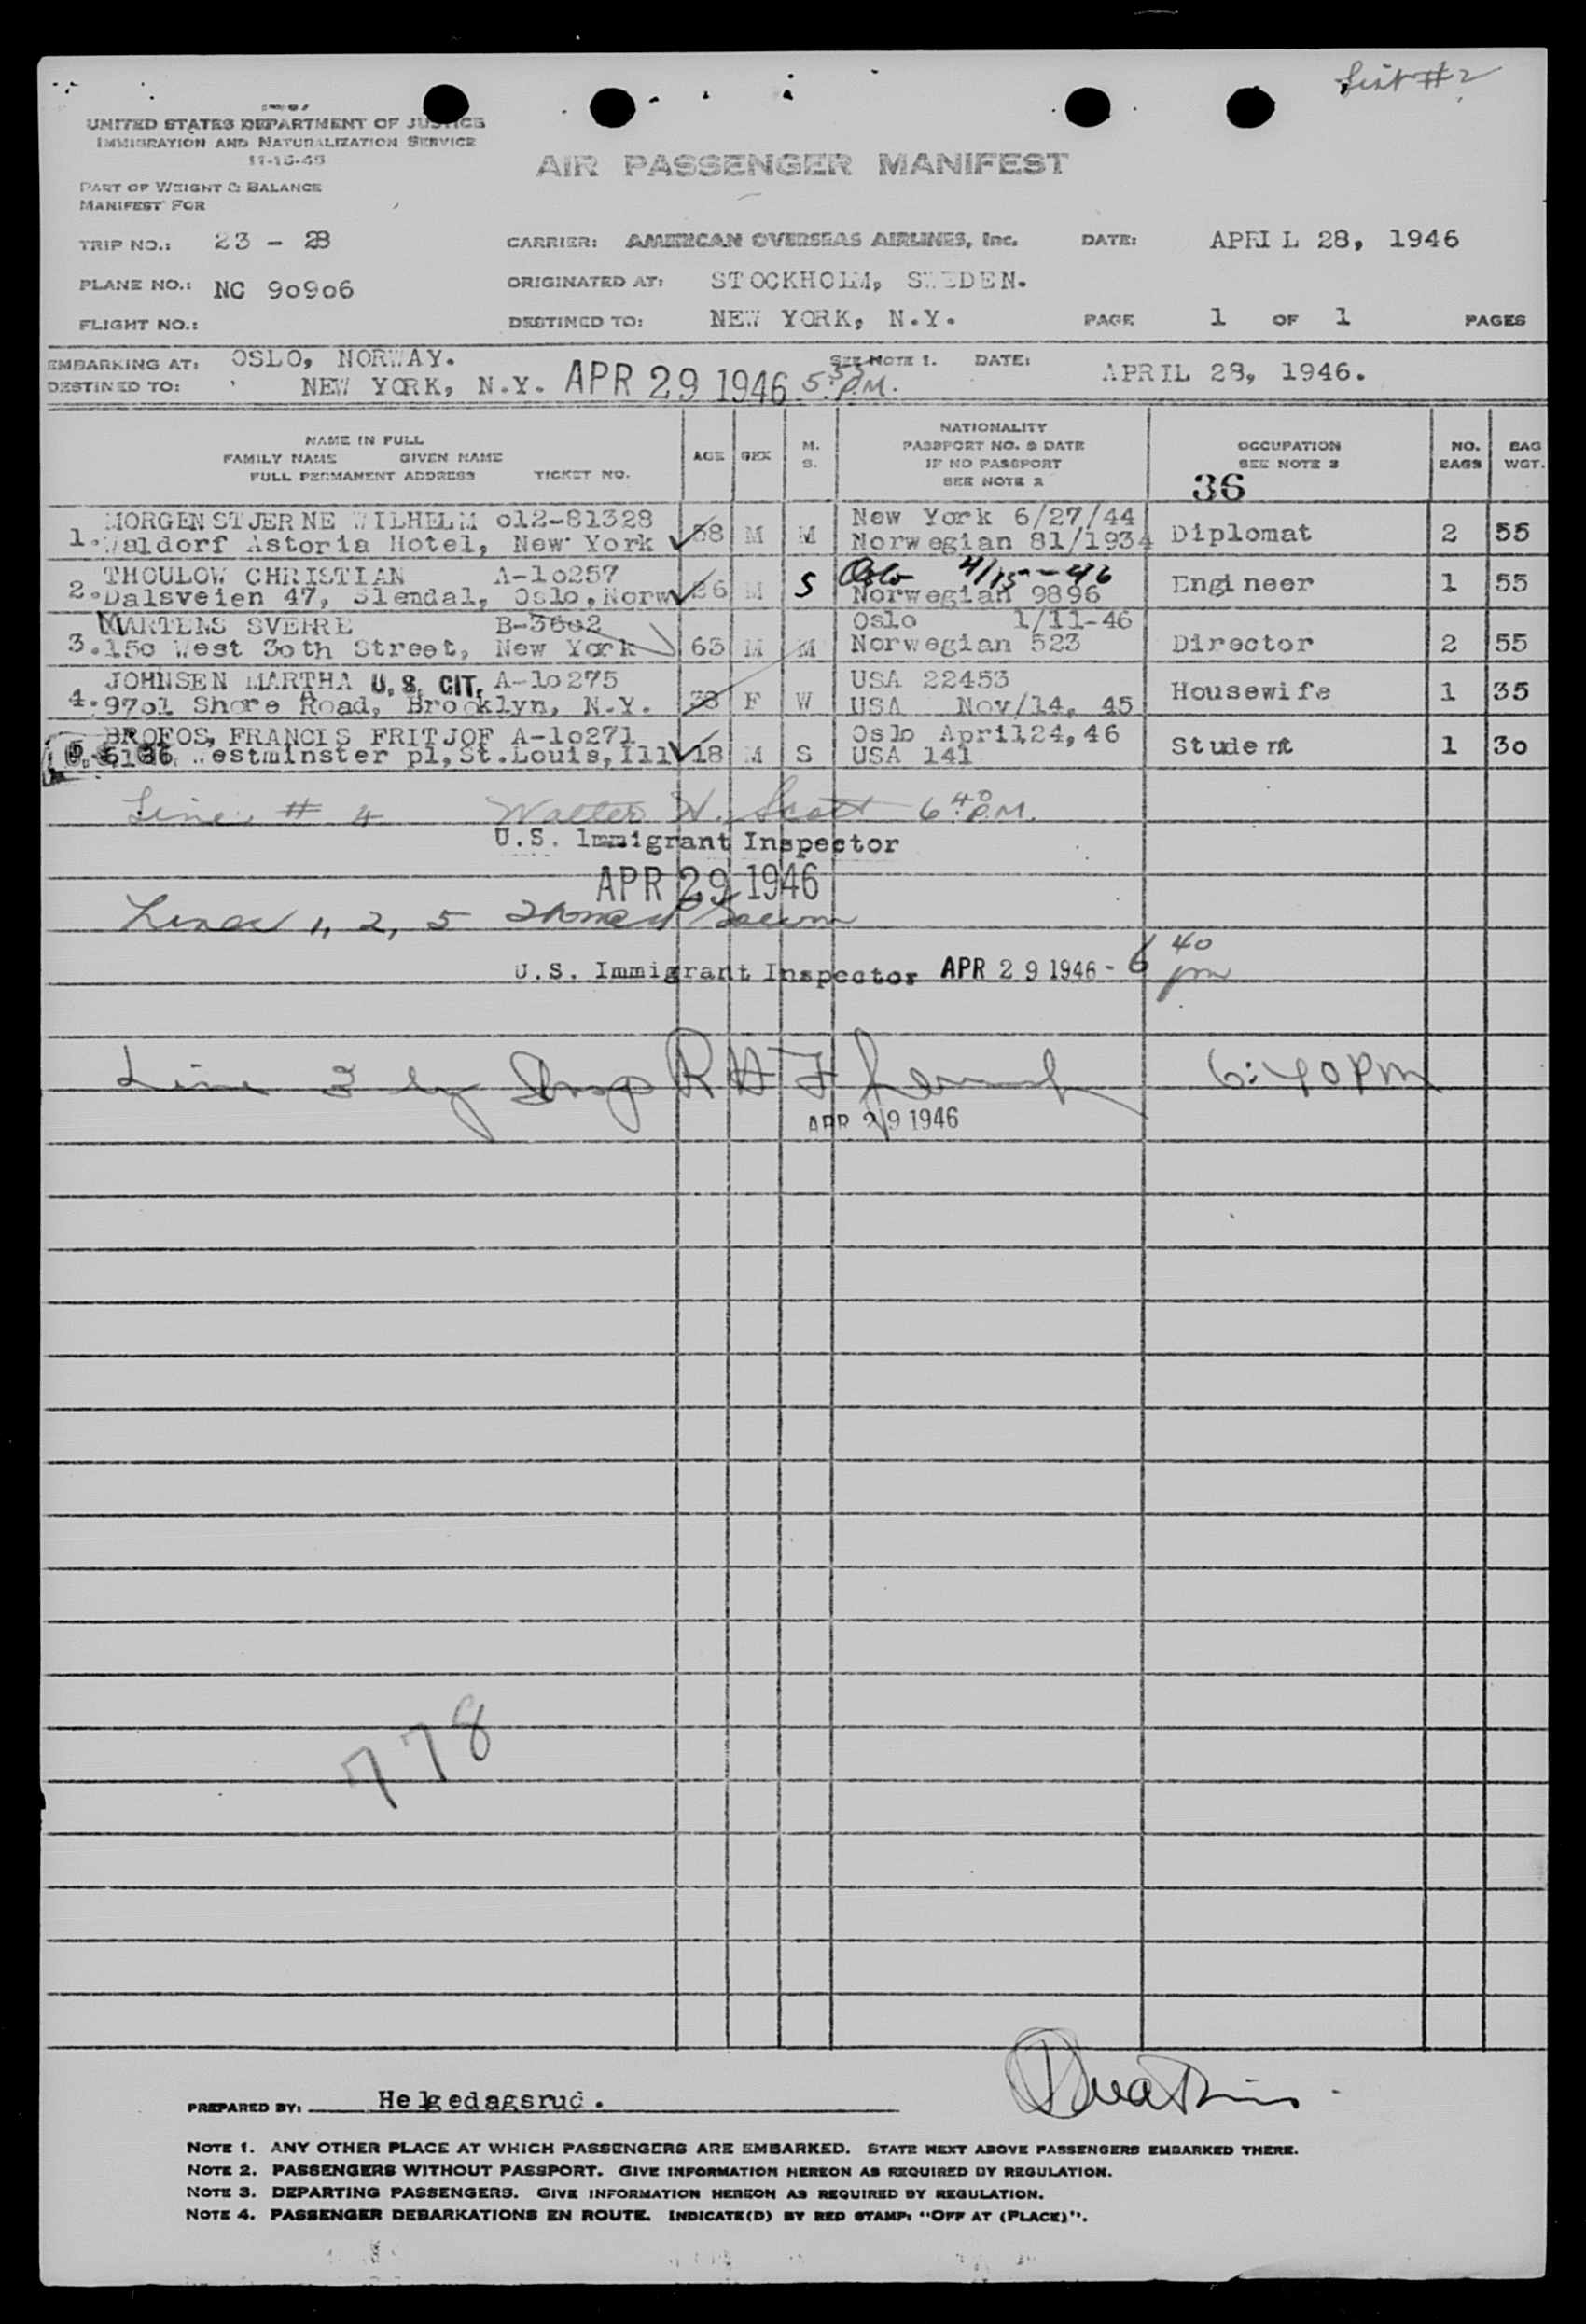 List #2
UNITED STATES DEPARTMENT OF JUSTICE
IMMIGRATION AND NATURALIZATION SERVICE
11-15-45
AIR PASSENGER MANIFEST
PART OF WEIGHT & BALANCE
MANIFEST FOR
TRIP NO.: 23 - 28 CARRIER: AMERICAN OVERSEAS AIRLINES, Inc. DATE: APRI L 28, 1946
PLANE NO.: NC 90906 ORIGINATED AT: STOCKHOLM, SWEDEN.
FLIGHT NO.: DESTINED TO: NEW YORK, N.Y. PAGE 1 OF 1 PAGES
EMBARKING AT: OSLO, NORWAY. SEE NOTE 1. DATE: APRIL 28, 1946.
DESTINED TO: NEW YORK, N.Y. APR 29 1946 5:35 P.M.
NAME IN FULL
FAMILY NAME GIVEN NAME
FULL PERMANENT ADDRESS TICKET NO.
AGE SEX M. S.
NATIONALITY
PASSPORT NO. & DATE
IF NO PASSPORT
SEE NOTE 2
OCCUPATION
SEE NOTE 3
36
NO. BAGS
BAG WGT.
MORGENSTJERNE WILHELM 012-81328 New York 6/27/44
1. Waldorf Astoria Hotel, New York 58 M M Norwegian 81/1934 Diplomat 2 55
THOULOW CHRISTIAN A-10257 Oslo 4/15--46
2. Dalsveien 47, Slemdal, Oslo, Norw 26 M S Norwegian 9896 Engineer 1 55
MARTENS SVERRE B-3602 Oslo 1/11-46
3. 150 West 30th Street, New York 63 M M Norwegian 523 Director 2 55
JOHNSEN MARTHA U. S. CIT. A-10275 USA 22453
4. 9701 Shore Road, Brooklyn, N.Y. 38 F W USA Nov/14, 45 Housewife 1 35
BROFOS, FRANCIS FRITJOF A-10271 Oslo April24,46
Westminster pl,St.Louis,Ill 18 M S USA 141 Student 1 30
Line # 4 Walter H. Scott 6:40 P.M.
U.S. Immigrant Inspector
APR 29 1946
Lines 1, 2, 5
U.S. Immigrant Inspector APR 29 1946 - 6 40 pm
Line 3 by Insp R H F 6:40 PM
APR 29 1946
778
PREPARED BY: Helgedagsrud.
NOTE 1. ANY OTHER PLACE AT WHICH PASSENGERS ARE EMBARKED. STATE NEXT ABOVE PASSENGERS EMBARKED THERE.
NOTE 2. PASSENGERS WITHOUT PASSPORT. GIVE INFORMATION HEREON AS REQUIRED BY REGULATION.
NOTE 3. DEPARTING PASSENGERS. GIVE INFORMATION HEREON AS REQUIRED BY REGULATION.
NOTE 4. PASSENGER DEBARKATIONS EN ROUTE. INDICATE(D) BY RED STAMP: "OFF AT (PLACE)".